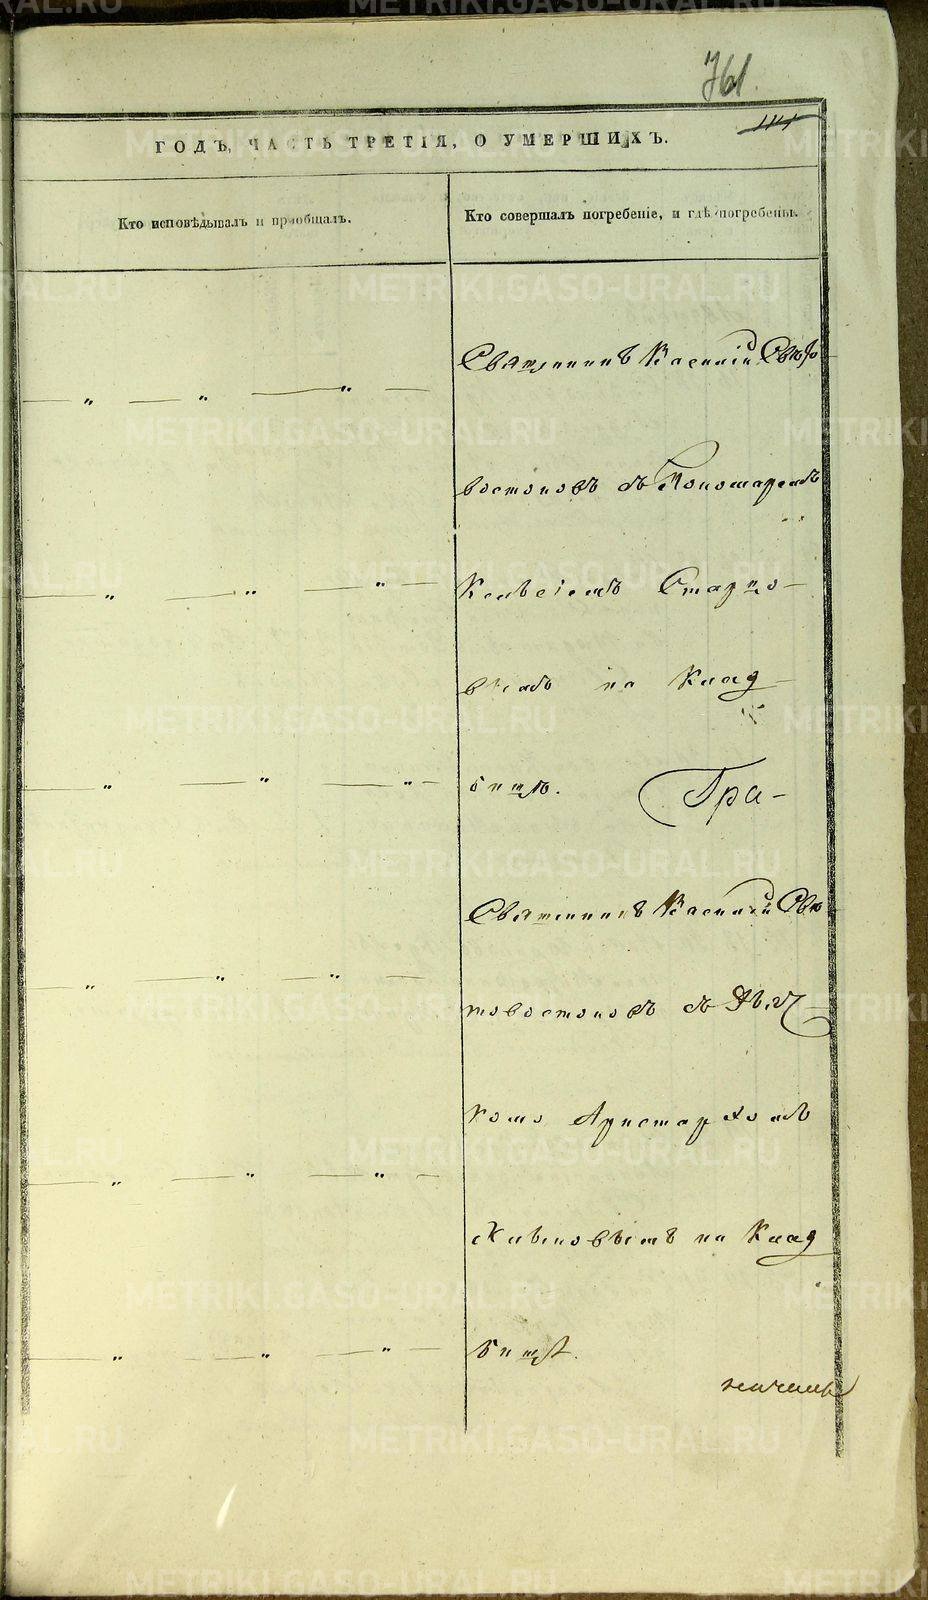 761.
ГОДЪ, ЧАСТЬ ТРЕТІЯ, О УМЕРШИХЪ.
Кто исповѣдывалъ и пріобщалъ.
Кто совершалъ погребеніе, и гдѣ погребены.
Священникъ Василій Свѣто-
востоковъ съ Пономаремъ
Старцо-
вымъ на Клад-
бищѣ. Гра-
Священникъ Василій Свѣ-
товостоковъ съ
комъ Аристархомъ
на Клад
бищѣ.
METRIKI.GASO-URAL.RU